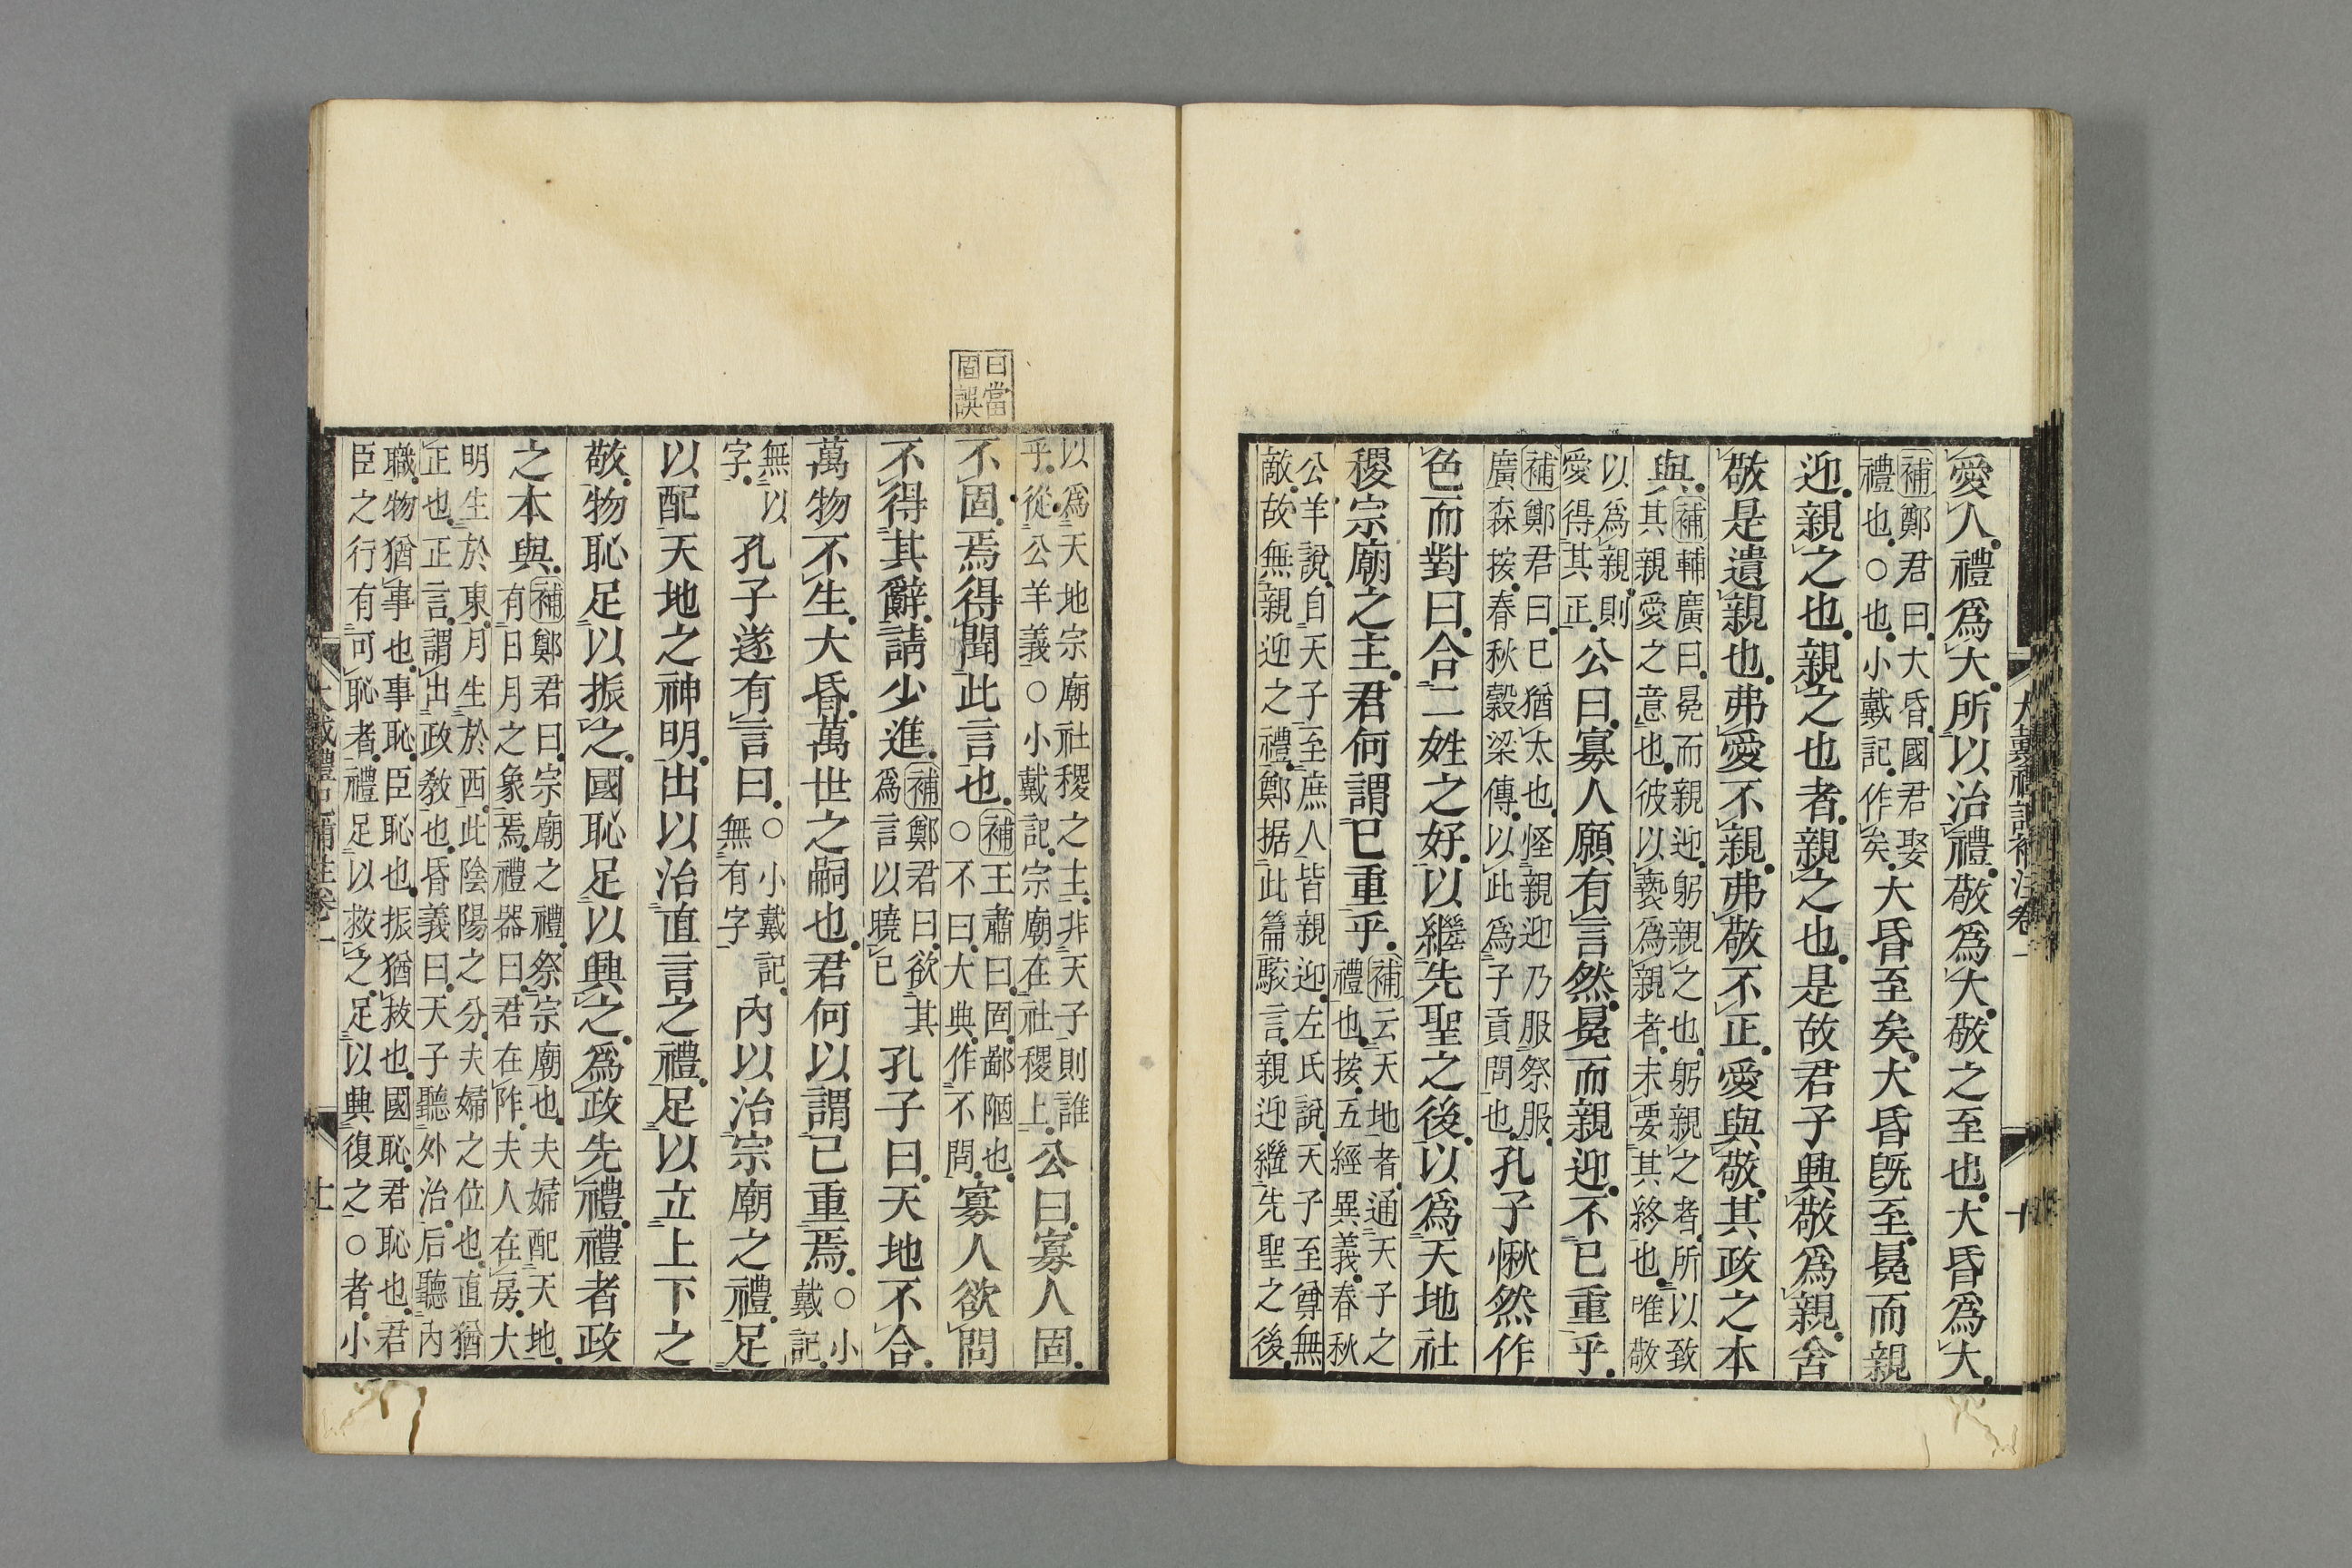 大戴禮記補注卷一
十
愛人禮爲大所以治禮敬爲大敬之至也大昏爲大
補鄭君曰大昏國君娶
禮也○也小戴記作矣
大昏至矣大昏旣至冕而親
迎親之也親之也者親之也是故君子興敬爲親舍
敬是遺親也弗愛不親弗敬不正愛與敬其政之本
與
補輔廣曰冕而親迎躬親之也躬親之者所以致
其親愛之意也彼以褻爲親者未要其終也唯敬
以爲親則
愛得其正
公曰寡人願有言然冕而親迎不已重乎
補鄭君曰已猶太也怪親迎乃服祭服
廣森按春秋穀梁傳以此爲子貢問也
孔子愀然作
色而對曰合二姓之好以繼先聖之後以爲天地社
稷宗廟之主君何謂已重乎
補云天地者通天子之
禮也按五經異義春秋
公羊說自天子至庶人皆親迎左氏說天子至尊無
敵故無親迎之禮鄭据此篇駁言親迎繼先聖之後
曰當
固誤
以爲天地宗廟社稷之主非天子則誰
乎從公羊義○小戴記宗廟在社稷上
公曰寡人固
不固焉得聞此言也
補王肅曰固鄙陋也
○不曰大典作不問
寡人欲問
不得其辭請少進
補鄭君曰欲其
爲言以曉已
孔子曰天地不合
萬物不生大昏萬世之嗣也君何以謂已重焉
○小
戴記
無以
字
孔子遂有言曰
○小戴記
無有字
內以治宗廟之禮足
以配天地之神明出以治直言之禮足以立上下之
敬物恥足以振之國恥足以興之爲政先禮禮者政
之本與
補鄭君曰宗廟之禮祭宗廟也夫婦配天地
有日月之象焉禮器曰君在阼夫人在房大
明生於東月生於西此陰陽之分夫婦之位也直猶
正也正言謂出政教也昏義曰天子聽外治后聽內
職物猶事也事恥臣恥也振猶救也國恥君恥也君
臣之行有可恥者禮足以救之足以興復之○者小
大戴禮記補注卷一
十一